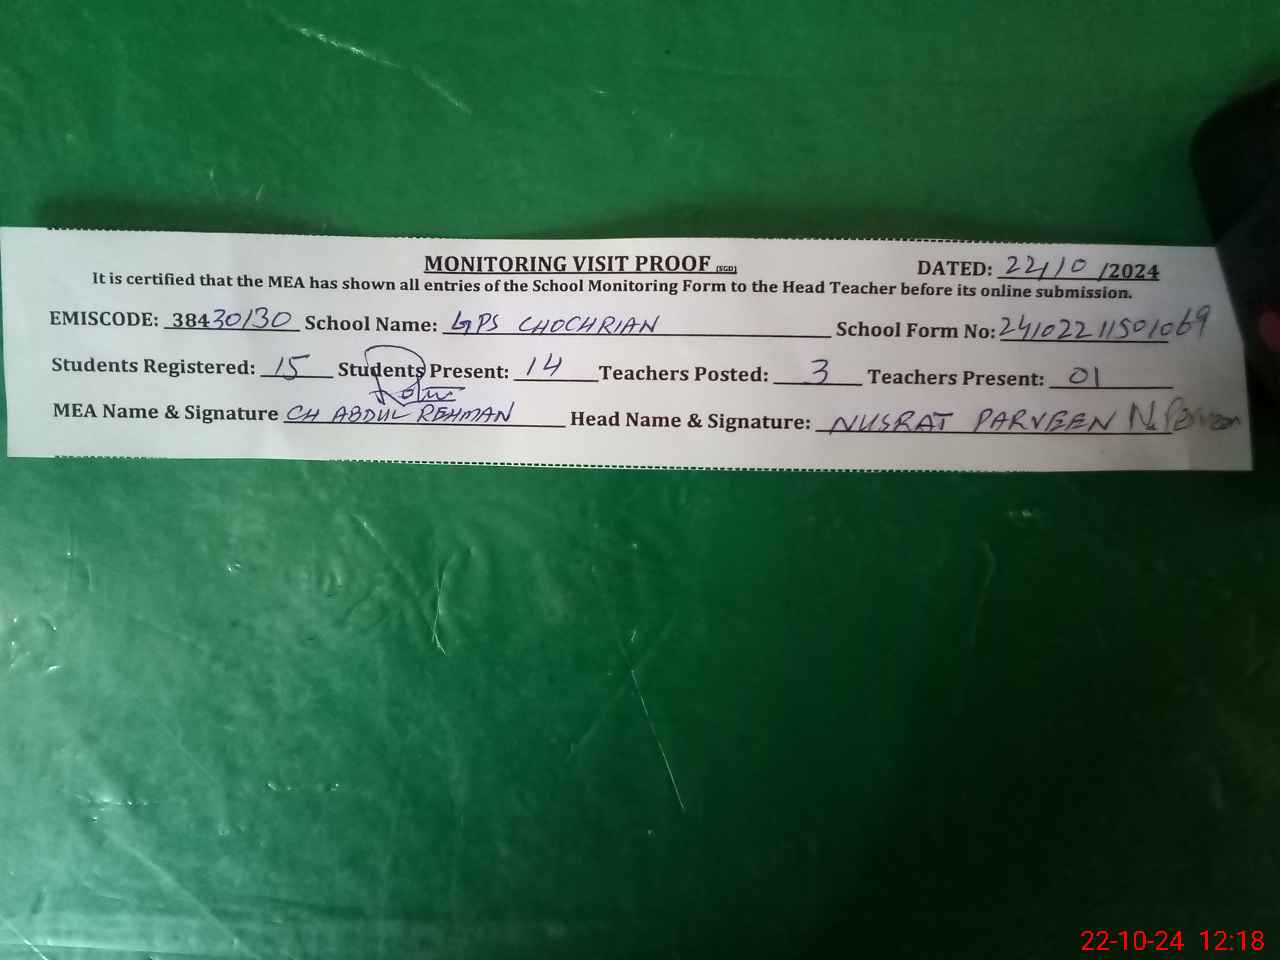 MONITORING VISIT PROOF (SGD) DATED: 22/10/2024
It is certified that the MEA has shown all entries of the School Monitoring Form to the Head Teacher before its online submission.
EMISCODE: 38430130 School Name: GPS CHOCHRIAN School Form No: 24102211501069
Students Registered: 15 Students Present: 14 Teachers Posted: 3 Teachers Present: 01
MEA Name & Signature CH ABDUL REHMAN Head Name & Signature: NUSRAT PARVEEN N. Parveen
22-10-24 12:18